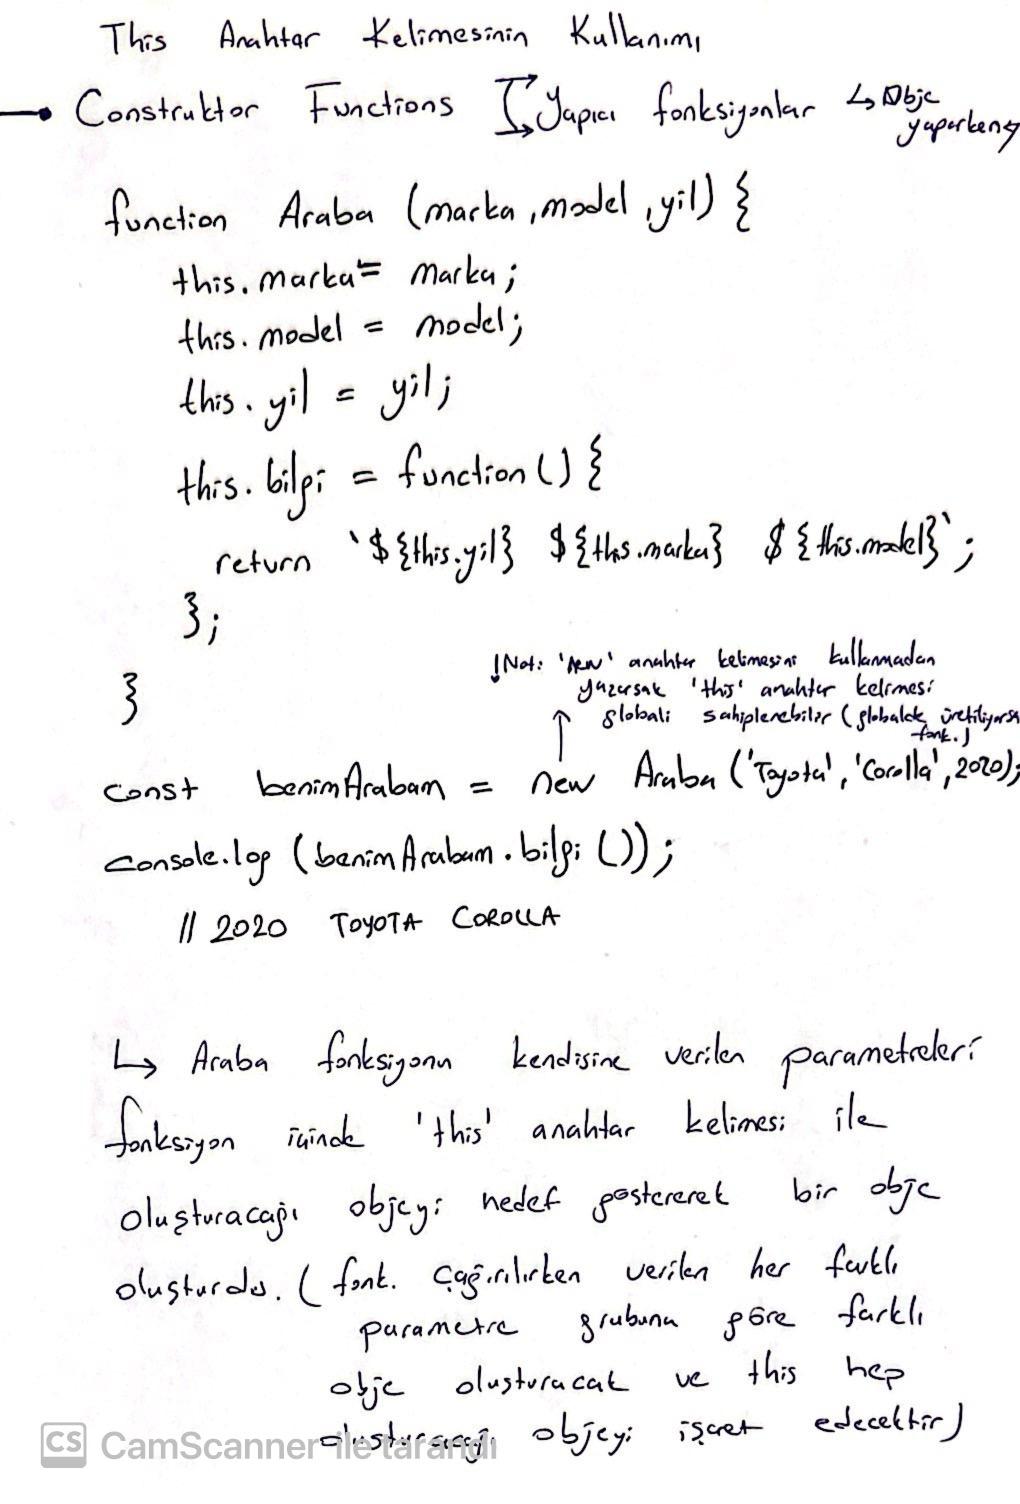 This Anahtar Kelimesinin Kullanımı
Construktor Functions Yapıcı fonksiyonlar ↳ Obje
yaparken
function Araba (marka, model, yil) {
this.marka = marka;
this.model = model;
this.yil = yil;
this.bilgi = function () {
return `${this.yil} ${this.marka} ${this.model}`;
};
}
! Not: 'new' anahtar kelimesini kullanmadan
yazarsak 'this' anahtar kelimesi
globali sahiplenebilir (globalde üretiliyorsa
fonk.)
const benimArabam = new Araba ('Toyota', 'Corolla', 2020);
console.log (benimArabam.bilgi ());
// 2020 TOYOTA COROLLA
↳ Araba fonksiyonu kendisine verilen parametreleri
fonksiyon içinde 'this' anahtar kelimesi ile
oluşturacağı objeyi hedef göstererek bir obje
oluşturdu. ( fonk. çağırılırken verilen her farklı
parametre grubuna göre farklı
obje oluşturacak ve this hep
oluşturacağı objeyi işaret edecektir)
CS CamScanner ile tarandı